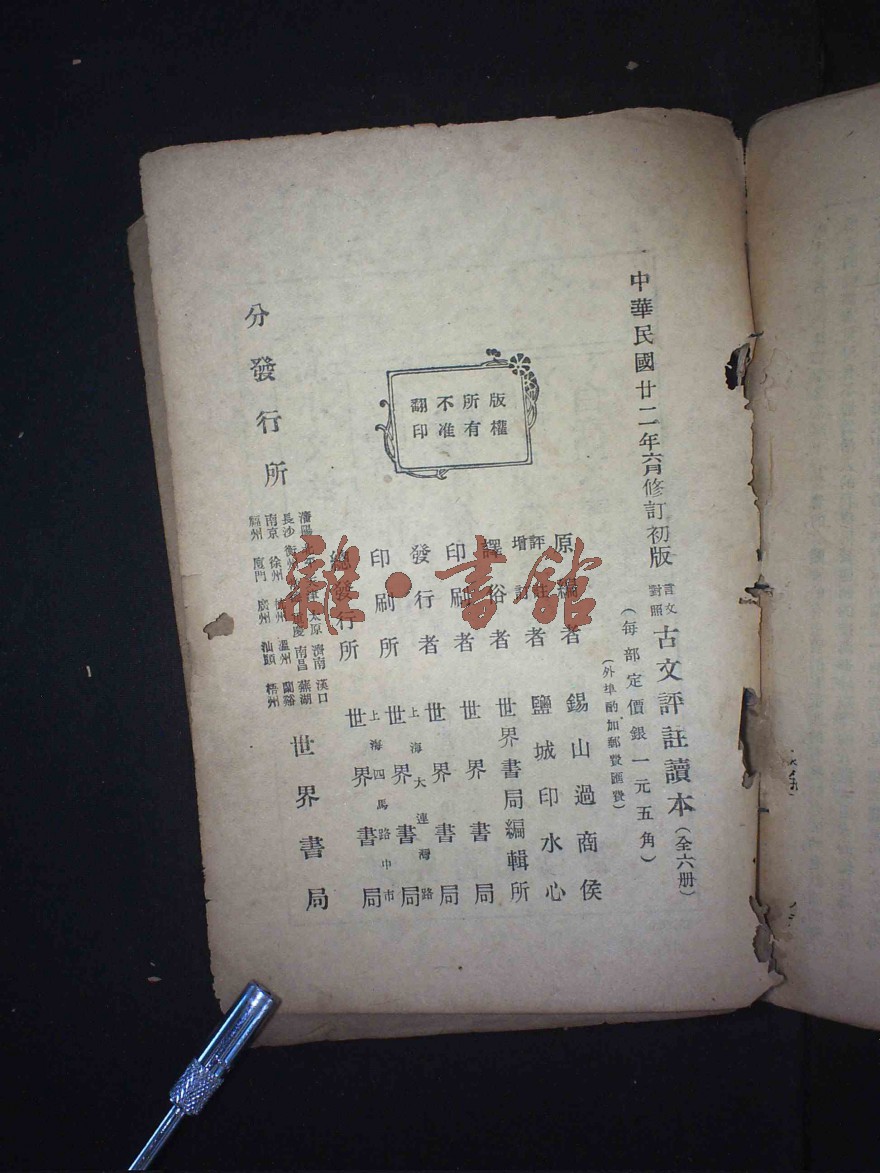 中華民國廿二年六月修訂初版
言文對照 古文評註讀本（全六册）
（每部定價銀一元五角）
（外埠酌加郵費匯費）
原編者 錫山過商侯
評註增訂者 鹽城印水心
譯俗者 世界書局編輯所
印刷者 世界書局
發行者 世界書局
印刷所 上海大連灣路 世界書局
總發行所 上海四馬路中市 世界書局
分發行所
瀋陽 太原 濟南 漢口
長沙 衡州 慶 南昌 蕪湖
南京 徐州 州 溫州 蘭谿
福州 廈門 廣州 汕頭 梧州
世界書局
版權所有
不准翻印
雜·書館